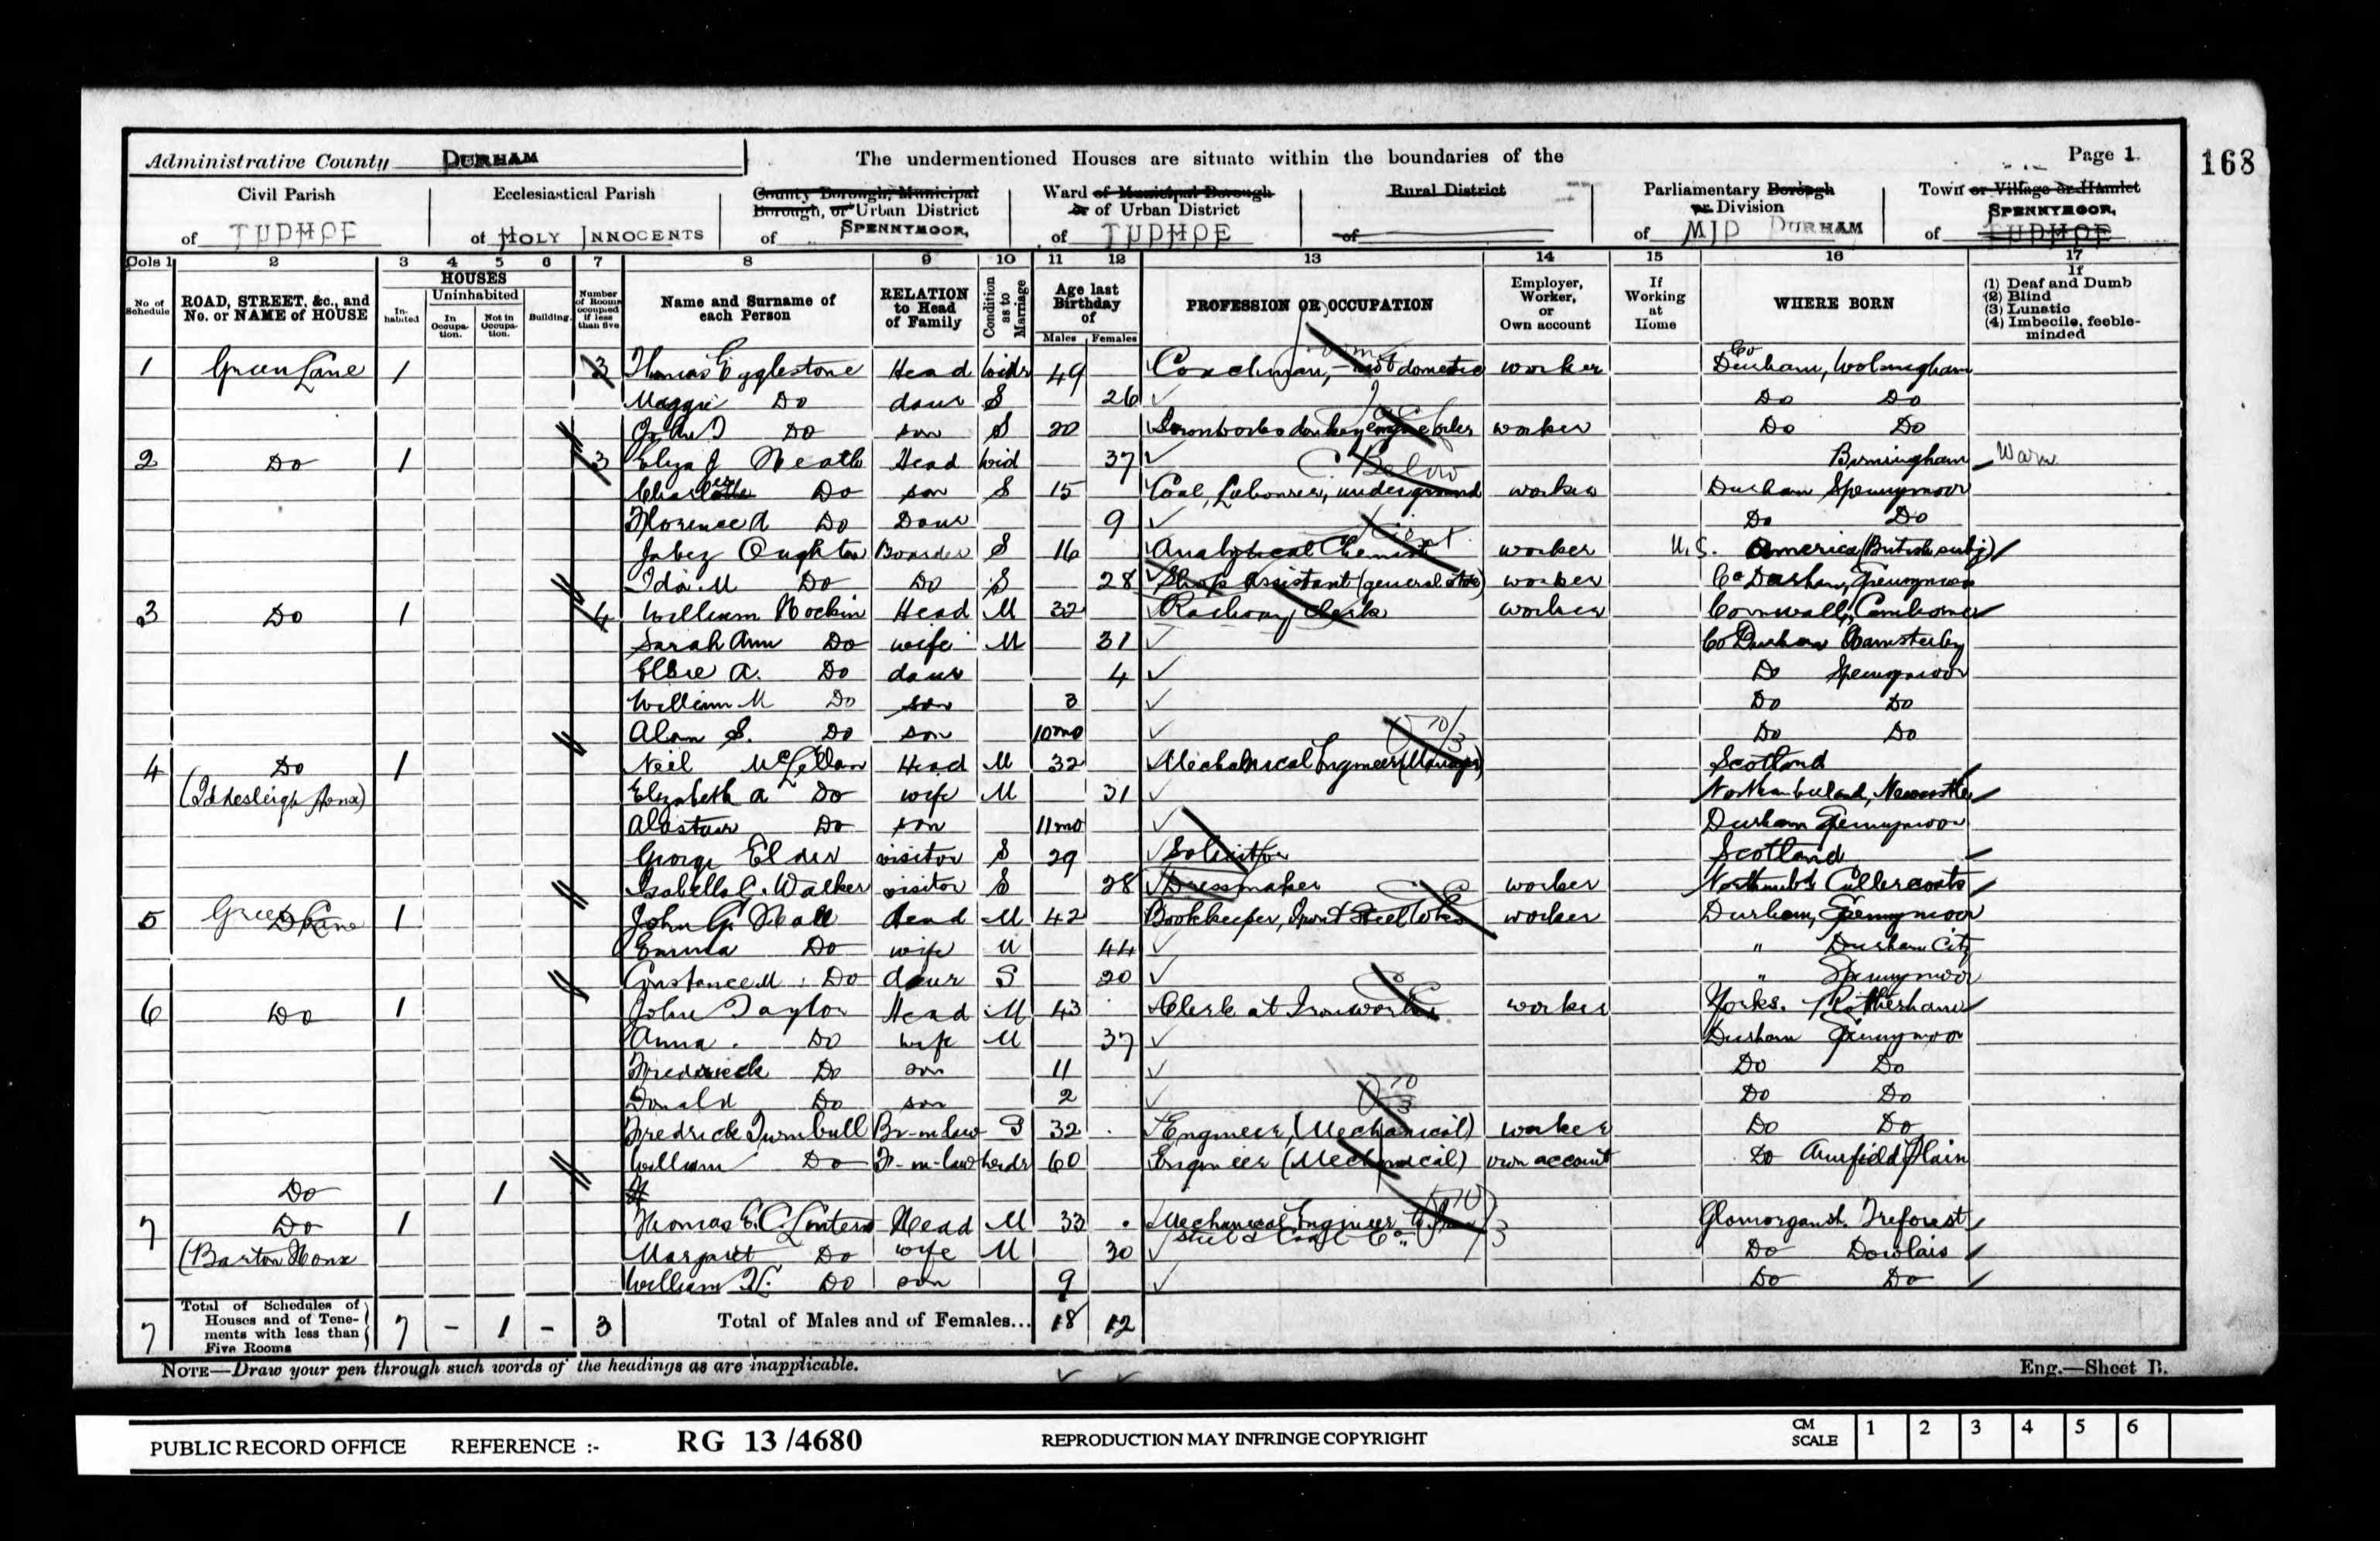 Administrative County DURHAM
The undermentioned Houses are situate within the boundaries of the
Page 1.
168
Civil Parish of TUDHOE
Ecclesiastical Parish of HOLY INNOCENTS
County Borough, Municipal Borough, or Urban District of SPENNYMOOR,
Ward of Municipal Borough or of Urban District of TUDHOE
Rural District of
Parliamentary Borough or Division of MID DURHAM
Town or Village or Hamlet of SPENNYMOOR, TUDHOE
Cols 1 2 3 4 5 6 7 8 9 10 11 12 13 14 15 16 17
No. of Schedule
ROAD, STREET, &c., and No. or NAME of HOUSE
HOUSES
Inhabited
Uninhabited
In Occupation.
Not in Occupation.
Building.
Number of Rooms occupied if less than five
Name and Surname of each Person
RELATION to Head of Family
Condition as to Marriage
Age last Birthday of
Males Females
PROFESSION OR OCCUPATION
Employer, Worker, or Own account
If Working at Home
WHERE BORN
If
(1) Deaf and Dumb
(2) Blind
(3) Lunatic
(4) Imbecile, feeble-minded
1 Green Lane 1 3 Thomas Egglestone Head Widr 49 Coachman, not domestic worker Co Durham, Wolsingham
Maggie Do daur S 26 Do Do
John T Do son S 20 Ironworks donkey engine worker Do Do
2 Do 1 3 Eliza J Heath Head Wid 37 Birmingham Warw
Do son S 15 Coal Labourer, underground C. Below worker Durham Spennymoor
Florence A Do Daur 9 Do Do
Jabez Oughton Boarder S 16 Analytical Chemist worker U.S. America (British subj)
Ida M Do Do S 28 Shop assistant (general store) worker Co Durham, Spennymoor
3 Do 1 4 William Hockin Head M 32 Railway Clerk worker Cornwall, Camborne
Sarah Ann Do wife M 31 Co Durham Hamsterley
Elsie A. Do daur 4 Do Spennymoor
William M Do son 3 Do Do
Alan S. Do son 10mo Do Do
4 Do 1 Neil McLellan Head M 32 Mechanical Engineer (Manager) Scotland
(Iddesleigh House) Elizabeth A Do wife M 31 Northumberland, Newcastle
Alastair Do son 11mo Durham Spennymoor
George Elder visitor S 29 Solicitor Scotland
Isabella C. Walker visitor S 28 Dressmaker worker Northumbd Cullercoats
5 Green Lane 1 John G. Hall Head M 42 Bookkeeper, Iron & Steel Wks worker Durham, Spennymoor
Emma Do wife M 44 " Durham City
Constance M. Do daur S 20 " Spennymoor
6 Do 1 John Taylor Head M 43 Clerk at Ironworks worker Yorks. Rotherham
Anna. Do wife M 37 Durham Spennymoor
Frederick Do son 11 Do Do
Donald Do son 2 Do Do
Fredrick Turnbull Br-in-law S 32 Engineer, (Mechanical) worker Do Do
William Do F-in-law Widr 60 Engineer (Mechanical) own account Do Annfield Plain
Do 1
7 Do 1 Thomas E.C. Head M 33 Mechanical Engineer Steel & Coal Co Glamorgansh. Treforest
(Barton House Margaret Do wife M 30 Do Dowlais
William Do son 9 Do Do
7 Total of Schedules of Houses and of Tenements with less than Five Rooms 7 - 1 - 3 Total of Males and of Females... 18 12
NOTE—Draw your pen through such words of the headings as are inapplicable.
Eng.—Sheet B.
PUBLIC RECORD OFFICE REFERENCE :- RG 13 /4680 REPRODUCTION MAY INFRINGE COPYRIGHT CM SCALE 1 2 3 4 5 6